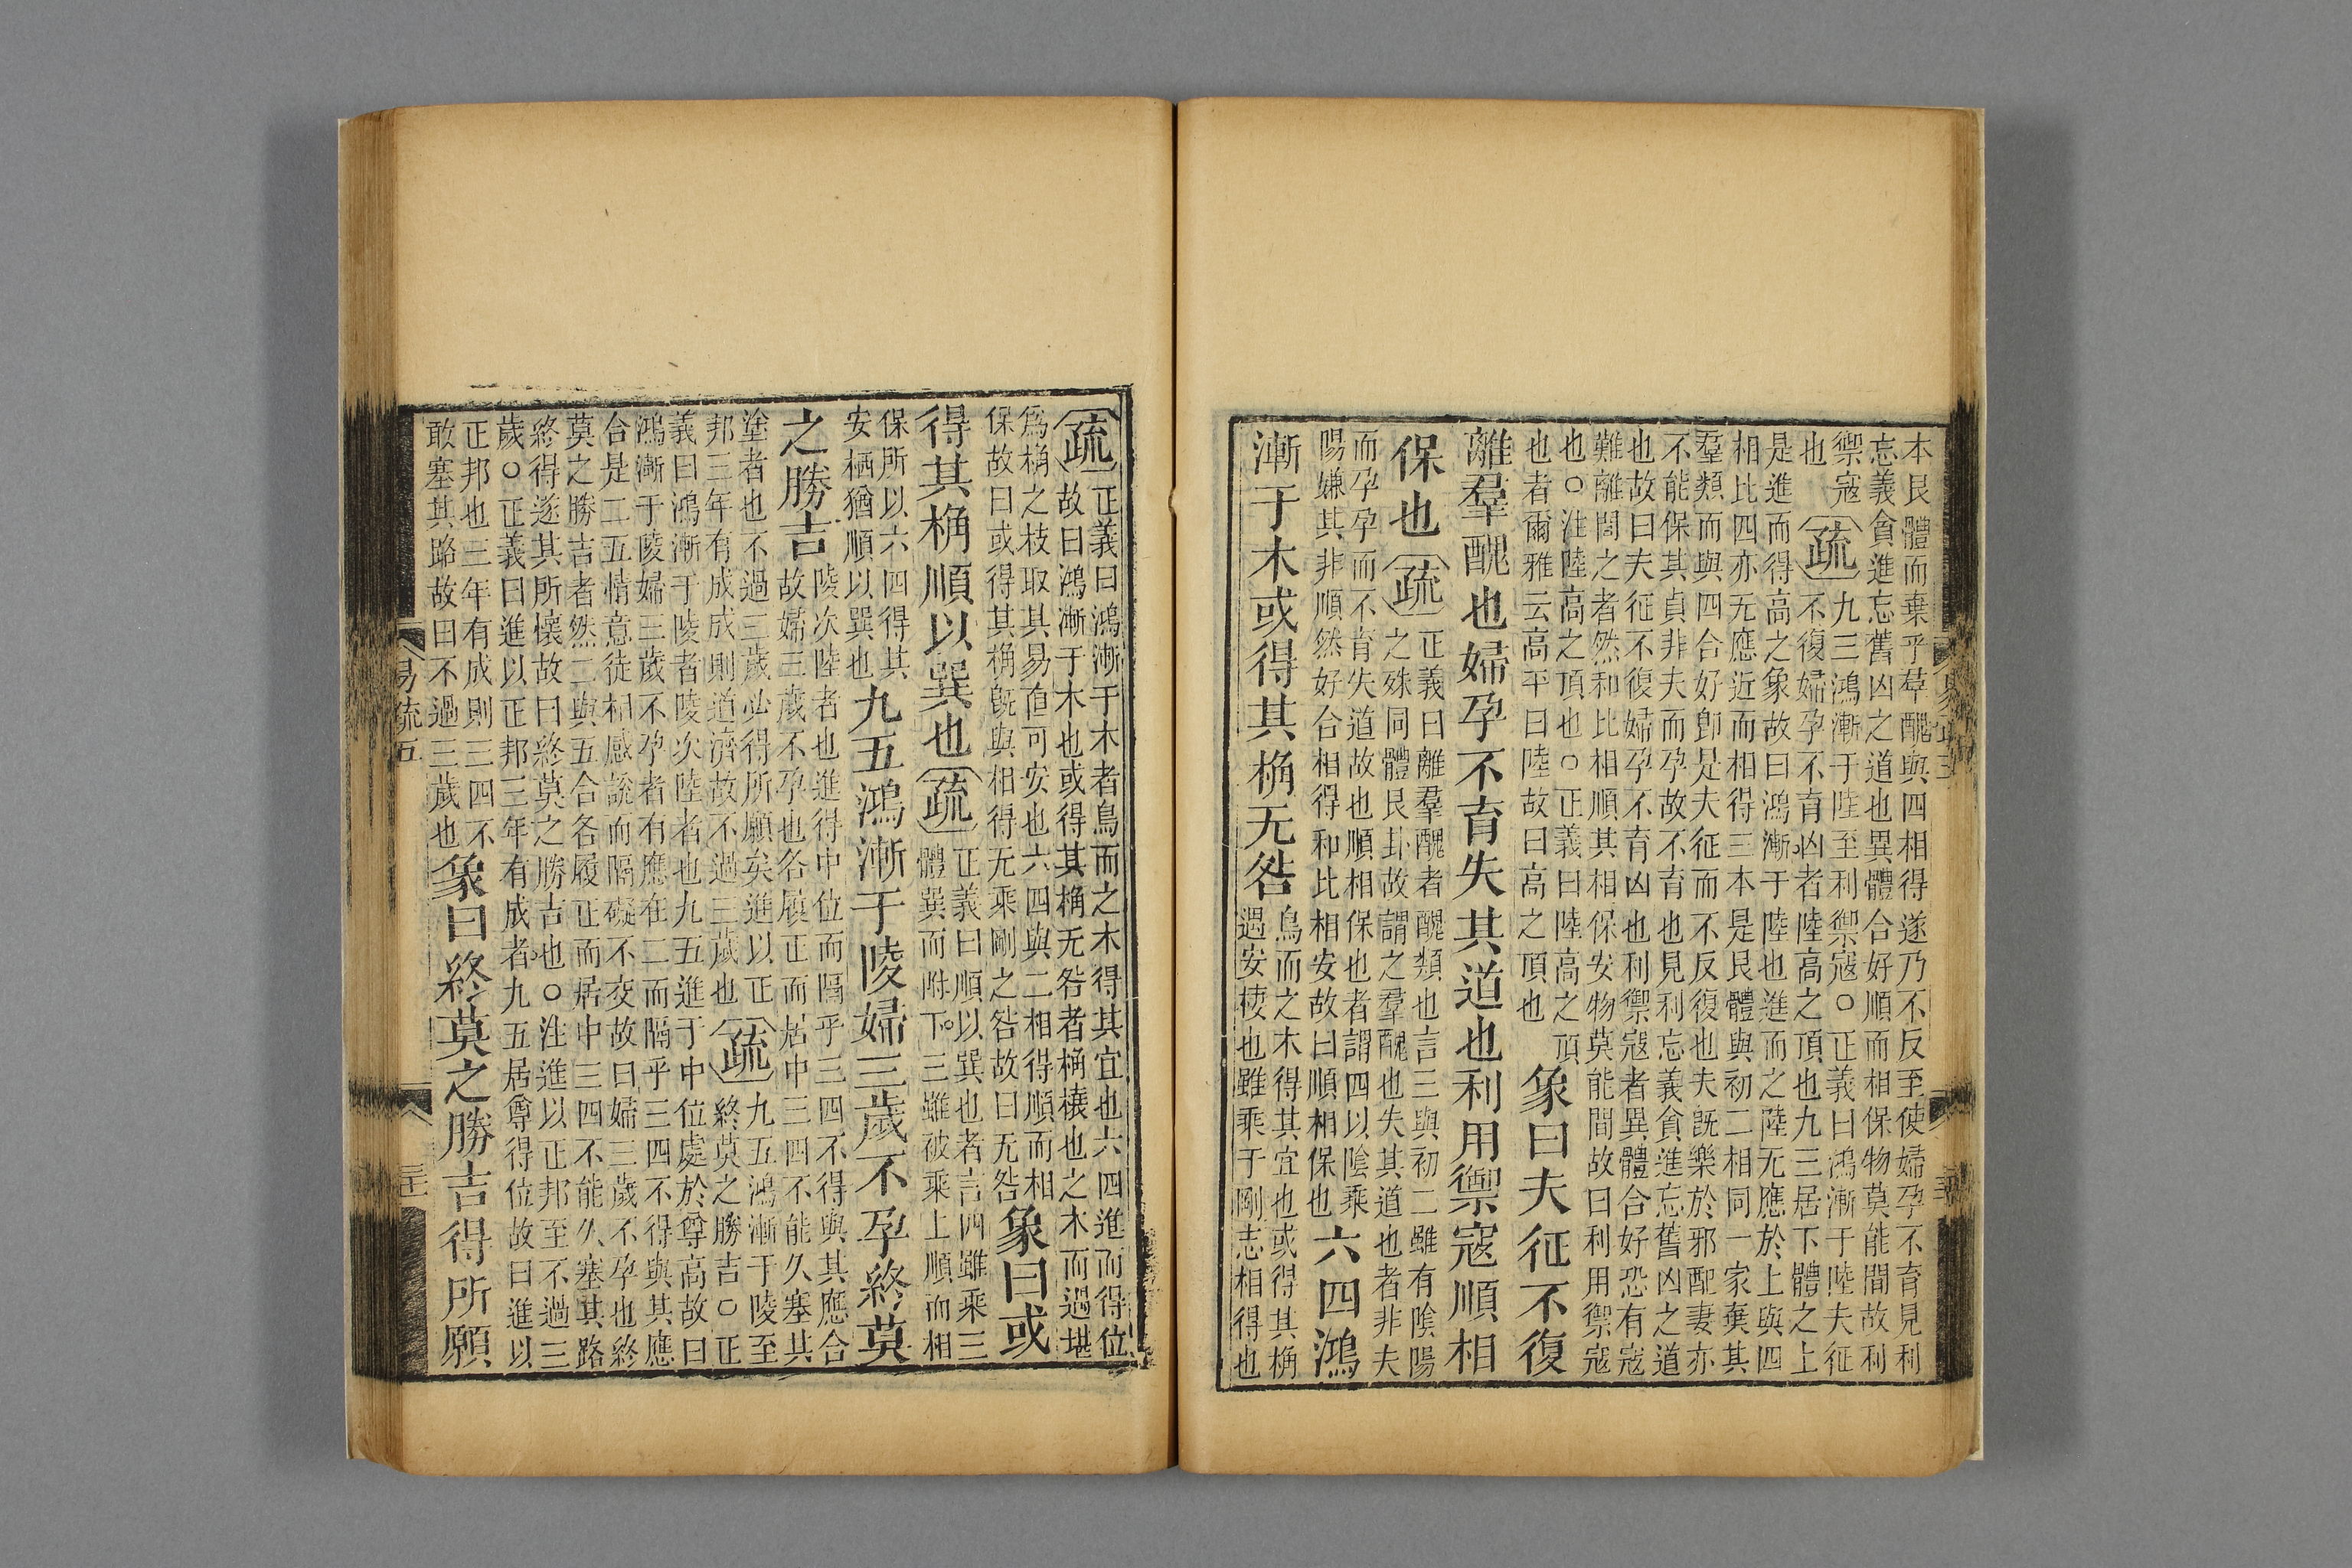 本艮體而棄乎羣醜與四相得遂乃不反至使婦孕不育見利
忘義貪進忘舊凶之道也異體合好順而相保物莫能間故利
禦寇
也疏九三鴻漸于陸至利禦寇○正義曰鴻漸于陸夫征
不復婦孕不育凶者陸高之頂也九三居下體之上
是進而得高之象故曰鴻漸于陸也進而之陸无應於上與四
相比四亦无應近而相得三本是艮體與初二相同一家棄其
羣類而與四合好卽是夫征而不反復也夫旣樂於邪配妻亦
不能保其貞非夫而孕故不育也見利忘義貪進忘舊凶之道
也故曰夫征不復婦孕不育凶也利禦寇者異體合好恐有寇
難離間之者然和比相順其相保安物莫能間故曰利用禦寇
也○注陸高之頂也○正義曰陸高之頂
也者爾雅云高平曰陸故曰高之頂也
象曰夫征不復
離羣醜也婦孕不育失其道也利用禦寇順相
保也疏正義曰離羣醜者醜類也言三與初二雖有陰陽
之殊同體艮卦故謂之羣醜也失其道也者非夫
而孕孕而不育失道故也順相保也者謂四以陰乘
陽嫌其非順然好合相得和比相安故曰順相保也
六四鴻
漸于木或得其桷无咎
鳥而之木得其宜也或得其桷
遇安棲也雖乘于剛志相得也
疏正義曰鴻漸于木者鳥而之木得其宜也六四進而得位
故曰鴻漸于木也或得其桷无咎者桷榱也之木而遇堪
爲桷之枝取其易直可安也六四與二相得順而相
保故曰或得其桷旣與相得无乘剛之咎故曰无咎
象曰或
得其桷順以巽也疏正義曰順以巽也者言四雖乘三
體巽而附下三雖被乘上順而相
保所以六四得其
安栖猶順以巽也
九五鴻漸于陵婦三歲不孕終莫
之勝吉
陵次陸者也進得中位而隔乎三四不得與其應合
故婦三歲不孕也各履正而居中三四不能久塞其
塗者也不過三歲必得所願矣進以正
邦三年有成成則道濟故不過三歲也
疏九五鴻漸于陵至
終莫之勝吉○正
義曰鴻漸于陵者陵次陸者也九五進于中位處於尊高故曰
鴻漸于陵婦三歲不孕者有應在二而隔乎三四不得與其應
合是二五情意徒相感說而隔礙不交故曰婦三歲不孕也終
莫之勝吉者然二與五合各履正而居中三四不能久塞其路
終得遂其所懷故曰終莫之勝吉也○注進以正邦至不過三
歲○正義曰進以正邦三年有成者九五居尊得位故曰進以
正邦也三年有成則三四不
敢塞其路故曰不過三歲也
象曰終莫之勝吉得所願
易疏五